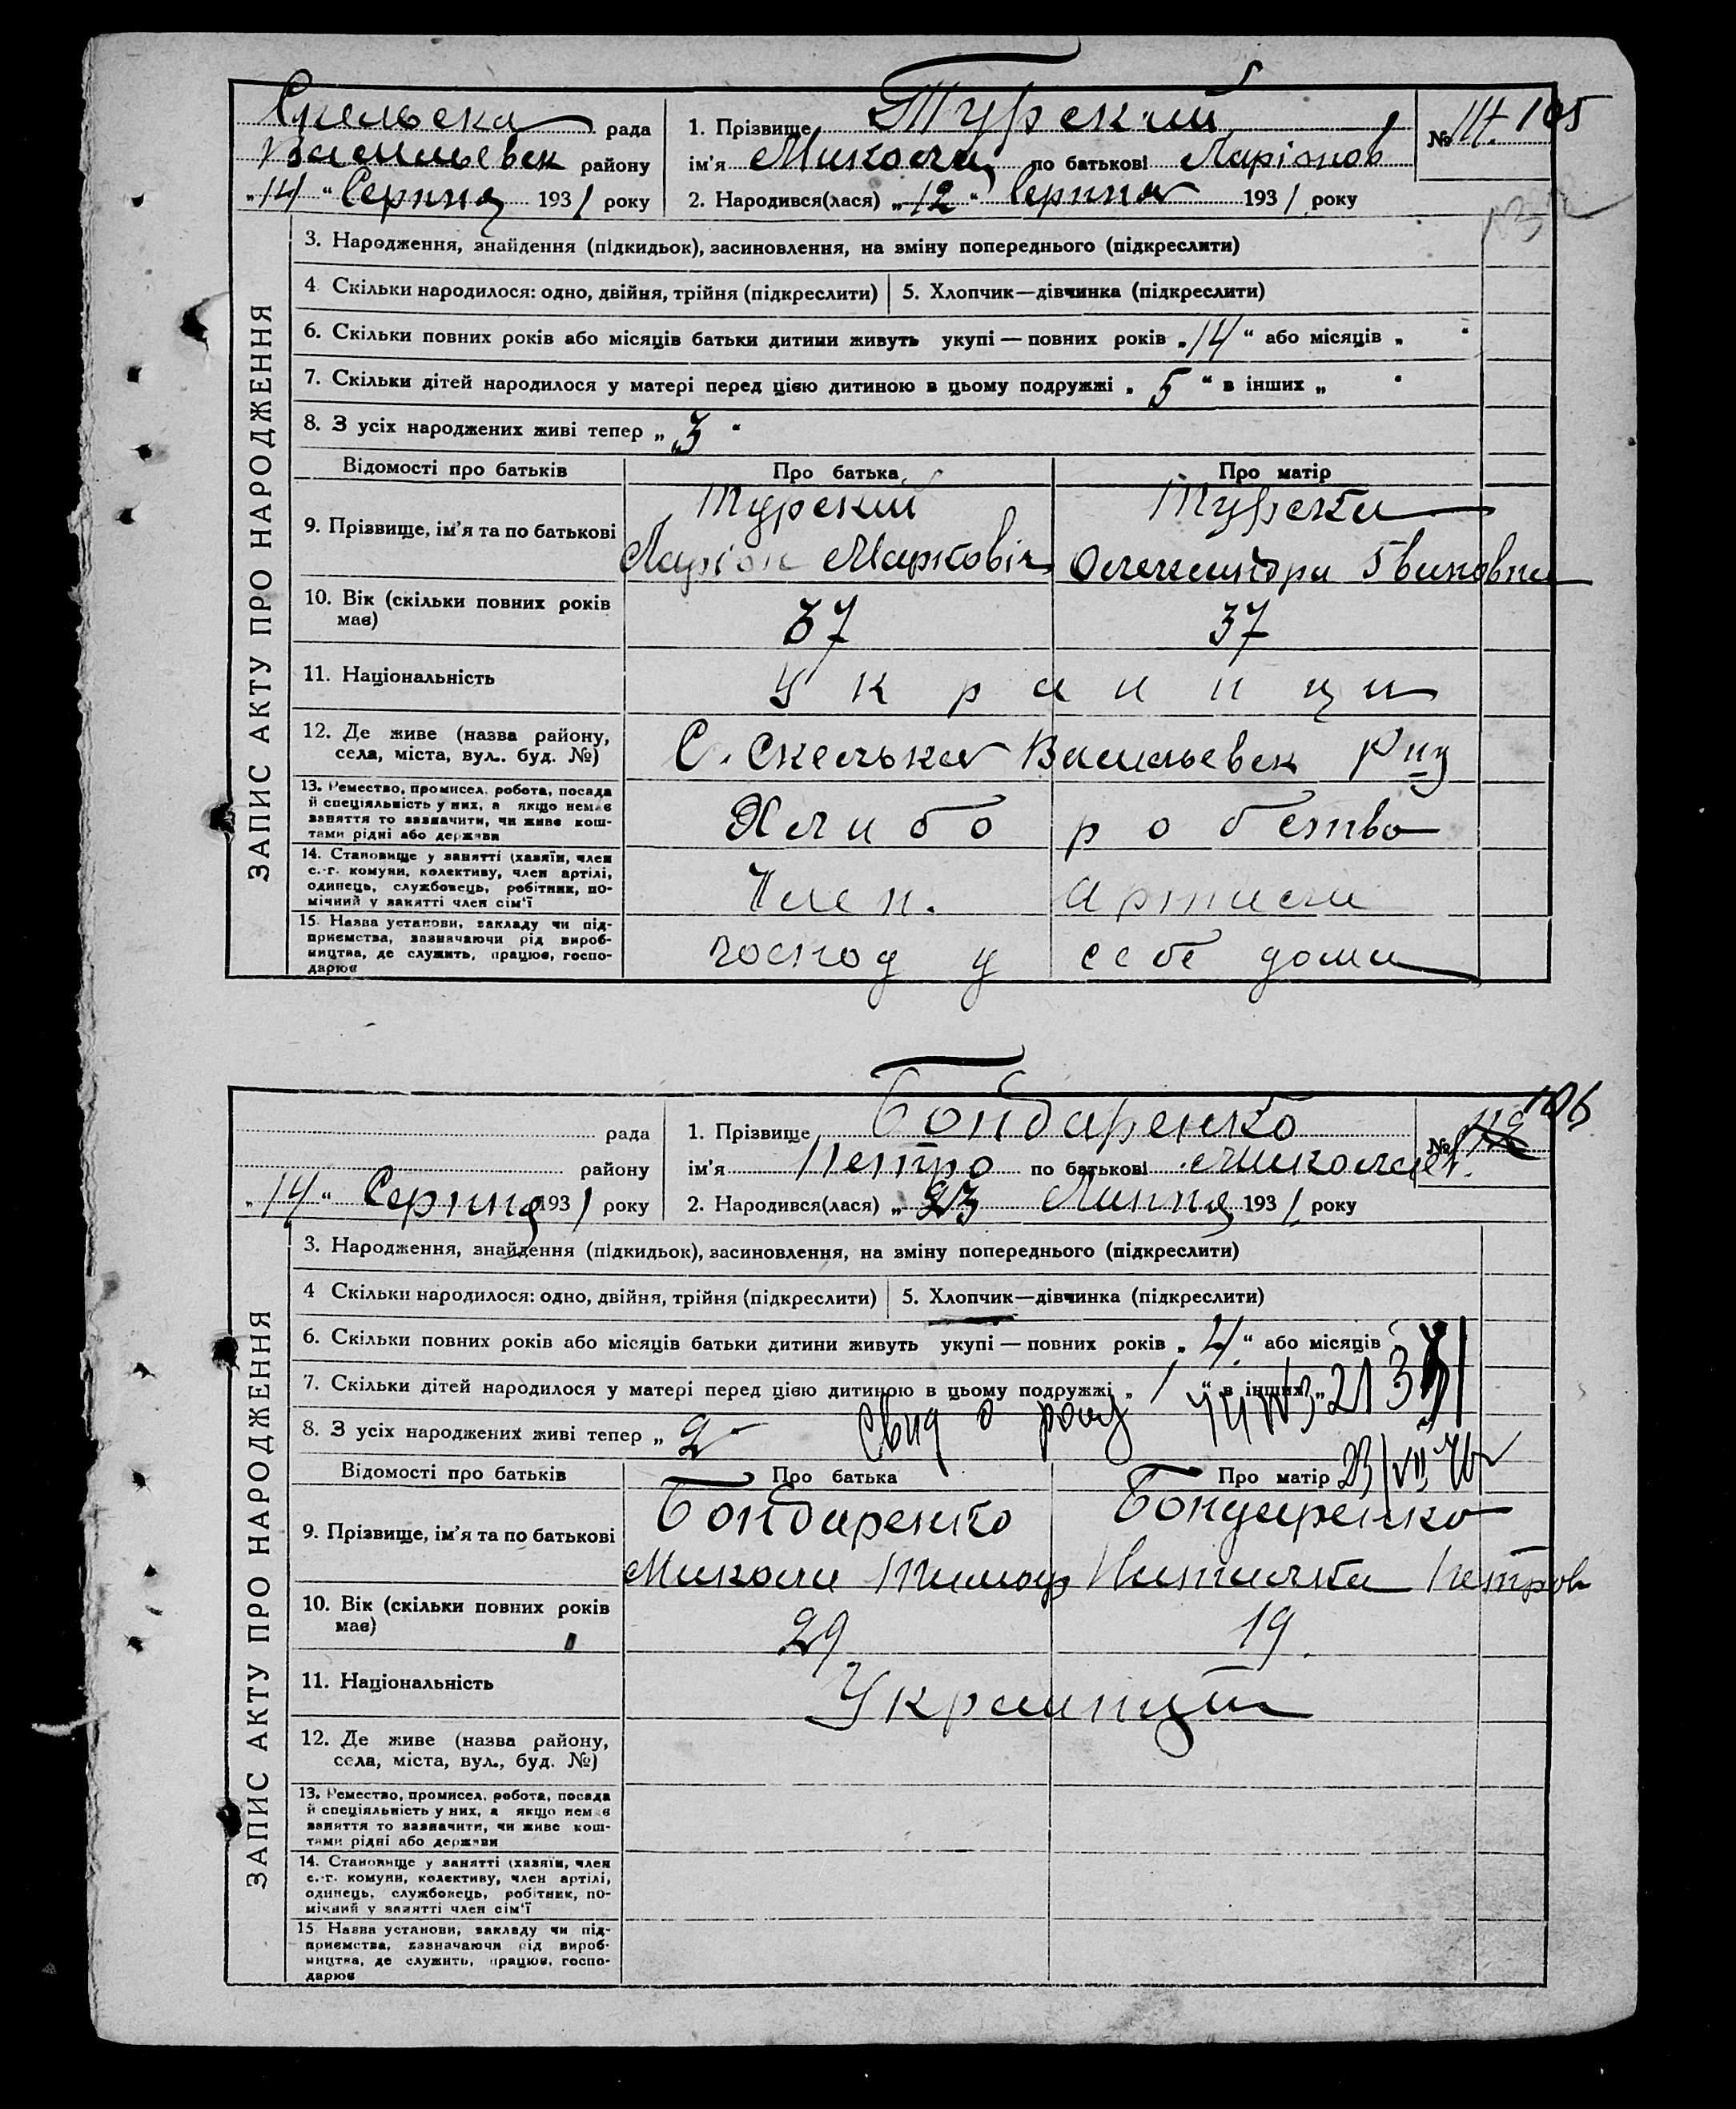 Скельска рада
Васильевск району
„14“ Серпня 1931 року
1. Прізвище Турский
ім'я Микола по батькові Ларіонов
2. Народився(лася) „12“ Серпня 1931 року
№ 105
ЗАПИС АКТУ ПРО НАРОДЖЕННЯ
3. Народження, знайдення (підкидьок), засиновлення, на зміну попереднього (підкреслити)
4 Скільки народилося: одно, двійня, трійня (підкреслити) 5. Хлопчик—дівчинка (підкреслити)
6. Скільки повних років або місяців батьки дитини живуть укупі — повних років „14“ або місяців „ “
7. Скільки дітей народилося у матері перед цією дитиною в цьому подружжі „5“ в інших „ “
8. З усіх народжених живі тепер „3“
Відомості про батьків Про батька Про матір
9. Прізвище, ім'я та по батькові
Турский Турска
Ларіон Маркович Олександра
10. Вік (скільки повних років має) 37 37
11. Національність Украинци
12. Де живе (назва району, села, міста, вул.. буд. №)
С. Скелька Васильевск р
13. Ремество, промисел, робота, посада й спеціяльність у них, а якщо немає заняття то зазначити, чи живе коштами рідні або держави
Хлиборобство
14. Становище у занятті (хазяїн, член с.-г. комуни, колективу, член артілі, одинець, службовець, робітник, помічний у занятті член сім'ї
Член. Артили
15. Назва установи, закладу чи підприємства, зазначаючи рід виробництва, де служить, працює, господарює
господ у себе дома
рада
району
„14“ Серпня 1931 року
1. Прізвище Бондаренко
ім'я Петро по батькові Миколаев.
2. Народився(лася) „23 Липня 1931 року
№ 106
ЗАПИС АКТУ ПРО НАРОДЖЕННЯ
3. Народження, знайдення (підкидьок), засиновлення, на зміну попереднього (підкреслити)
4 Скільки народилося: одно, двійня, трійня (підкреслити) 5. Хлопчик—дівчинка (підкреслити)
6. Скільки повних років або місяців батьки дитини живуть укупі — повних років „4“ або місяців
7. Скільки дітей народилося у матері перед цією дитиною в цьому подружжі „1“ в інших „
8. З усіх народжених живі тепер „2“ Свид о
Відомості про батьків Про батька Про матір
9. Прізвище, ім'я та по батькові
Бондаренко Бондаренко
Микола Тимоф Наталка Петров
10. Вік (скільки повних років має) 29 19.
11. Національність Украинци
12. Де живе (назва району, села, міста, вул., буд. №)
13. Ремество, промисел, робота, посада й спеціяльність у них, а якщо немає заняття то зазначити, чи живе коштами рідні або держави
14. Становище у занятті (хазяїн, член с.-г. комуни, колективу, член артілі, одинець, службовець, робітник, помічний у занятті член сім'ї
15 Назва установи, закладу чи підприємства, зазначаючи рід виробництва, де служить, працює, господарює